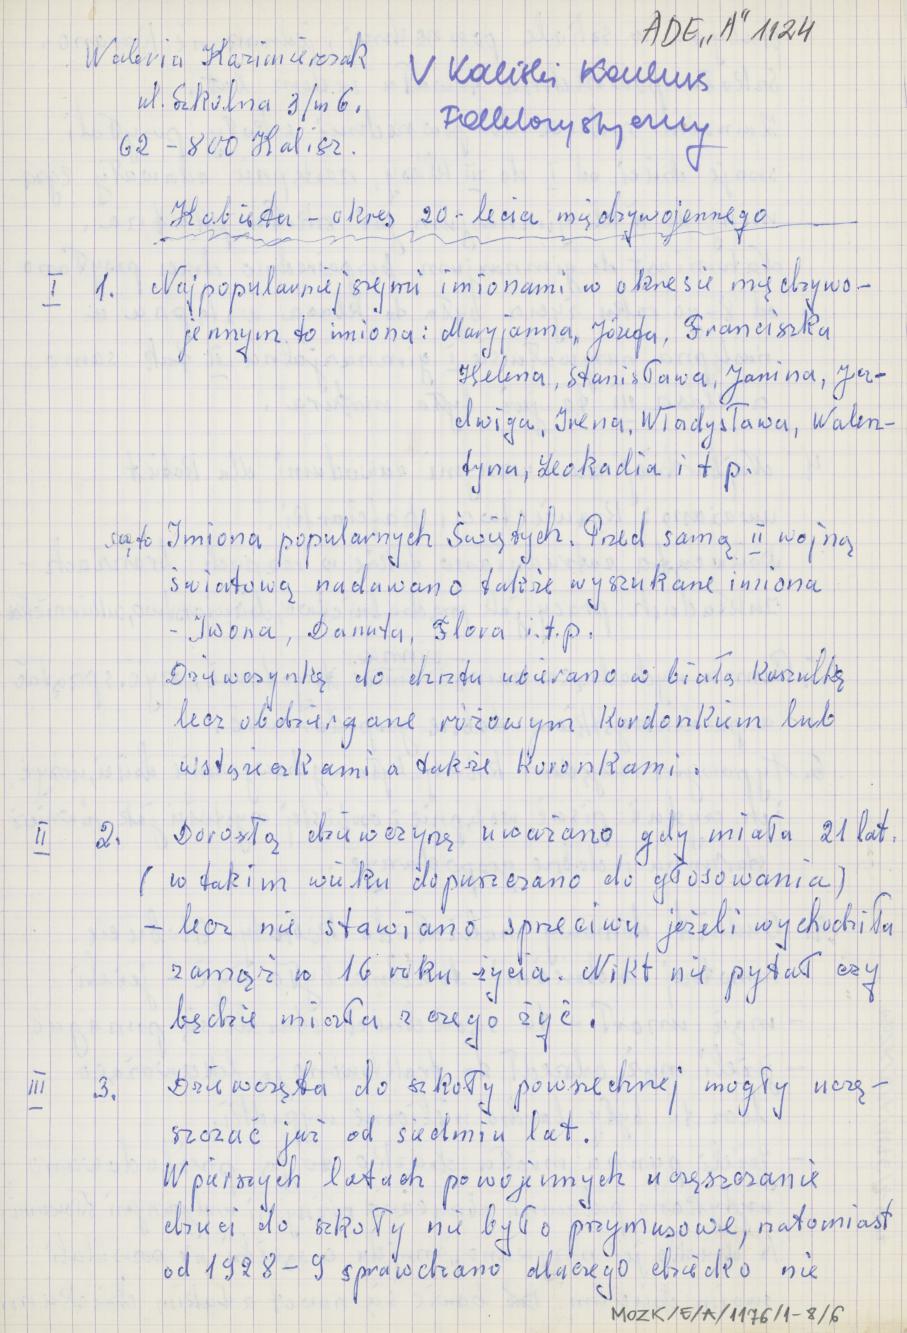 ADE „A" 1124
Waleria Kazimierczak
ul. Szkolna 3/m 6.
62-800 Kalisz.
V Kaliski Konkurs
Folklorystyczny
Kobieta - okres 20-lecia międzywojennego
I 1. Najpopularniejszymi imionami w okresie międzywo-
jennym to imiona: Maryjanna, Józefa, Franciszka
Helena, Stanisława, Janina, Ja-
dwiga, Irena, Władysława, Walen-
tyna, Leokadia i t p.
są to Imiona popularnych Świętych. Przed samą II wojną
światową nadawano także wyszukane imiona
- Iwona, Danuta, Flora i.t.p.
Dziewczynkę do chrztu ubierano w białą koszulkę
lecz obdziergane różowym kordonkiem lub
wstążeczkami a także koronkami.
II 2. Dorosłą dziewczyną uważano gdy miała 21 lat.
( w takim wieku dopuszczano do głosowania)
- lecz nie stawiano sprzeciwu jeżeli wychodziła
zamąż w 16 roku życia. Nikt nie pytał czy
będzie miała z czego żyć.
III 3. Dziewczęta do szkoły powszechnej mogły uczę-
szczać już od siedmiu lat.
W pierszych latach powojennych uczęszczanie
dzieci do szkoły nie było przymusowe, natomiast
od 1928-9 sprawdzano dlaczego dziecko nie
MOZK/E/A/1176/1-8/6